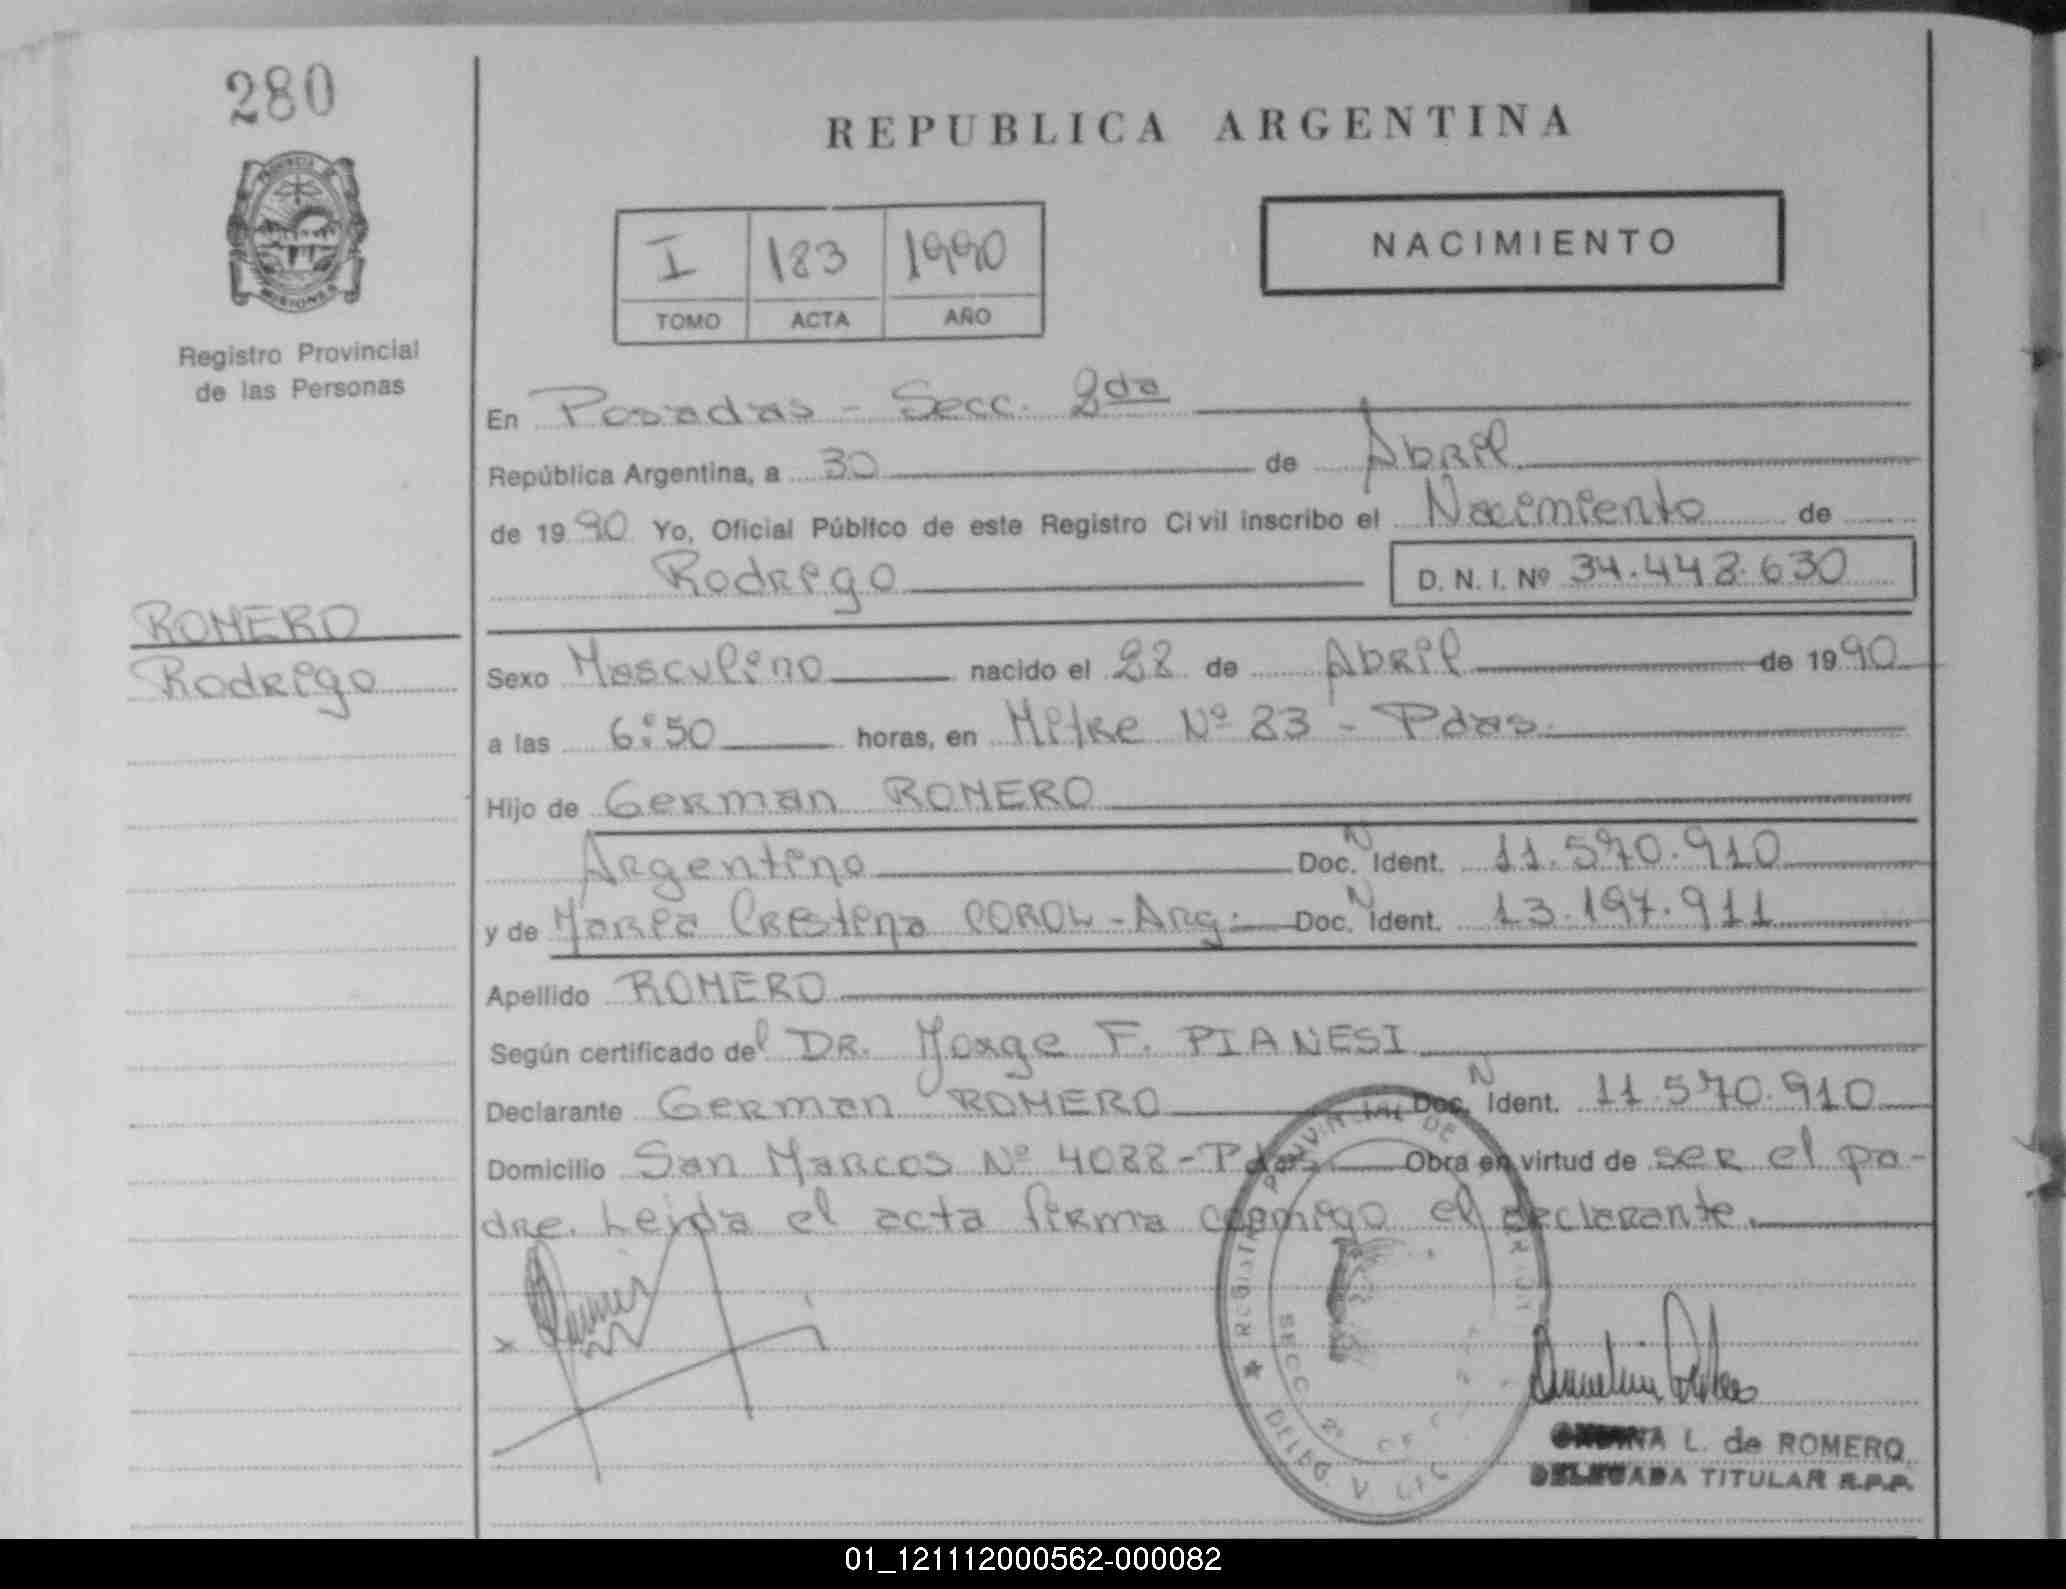 280
REPUBLICA ARGENTINA
I 183 1990
TOMO ACTA AÑO
NACIMIENTO
PROVINCIA DE
MISIONES
Registro Provincial
de las Personas
En Posadas - Secc. 2da
República Argentina, a 30 de Abril
de 1990 Yo, Oficial Público de este Registro Civil inscribo el Nacimiento de
Rodrigo D. N. I. Nº 34.448.630
ROMERO
Rodrigo
Sexo Masculino nacido el 28 de Abril de 1990
a las 6:50 horas, en Mitre Nº 83 - Pdas.
Hijo de German ROMERO
Argentino Doc. N Ident. 11.570.910
y de Maria Cristina COROL - Arg. Doc. N Ident. 13.197.911
Apellido ROMERO
Según certificado del DR. Jorge F. PIANESI
Declarante German ROMERO Doc. N Ident. 11.570.910
Domicilio San Marcos Nº 4088 - Pdas. Obra en virtud de ser el pa-
dre. Leida el acta firma conmigo el declarante.
SECC 2º
L. de ROMERO
DELEGADA TITULAR R.P.P.
01_121112000562-000082